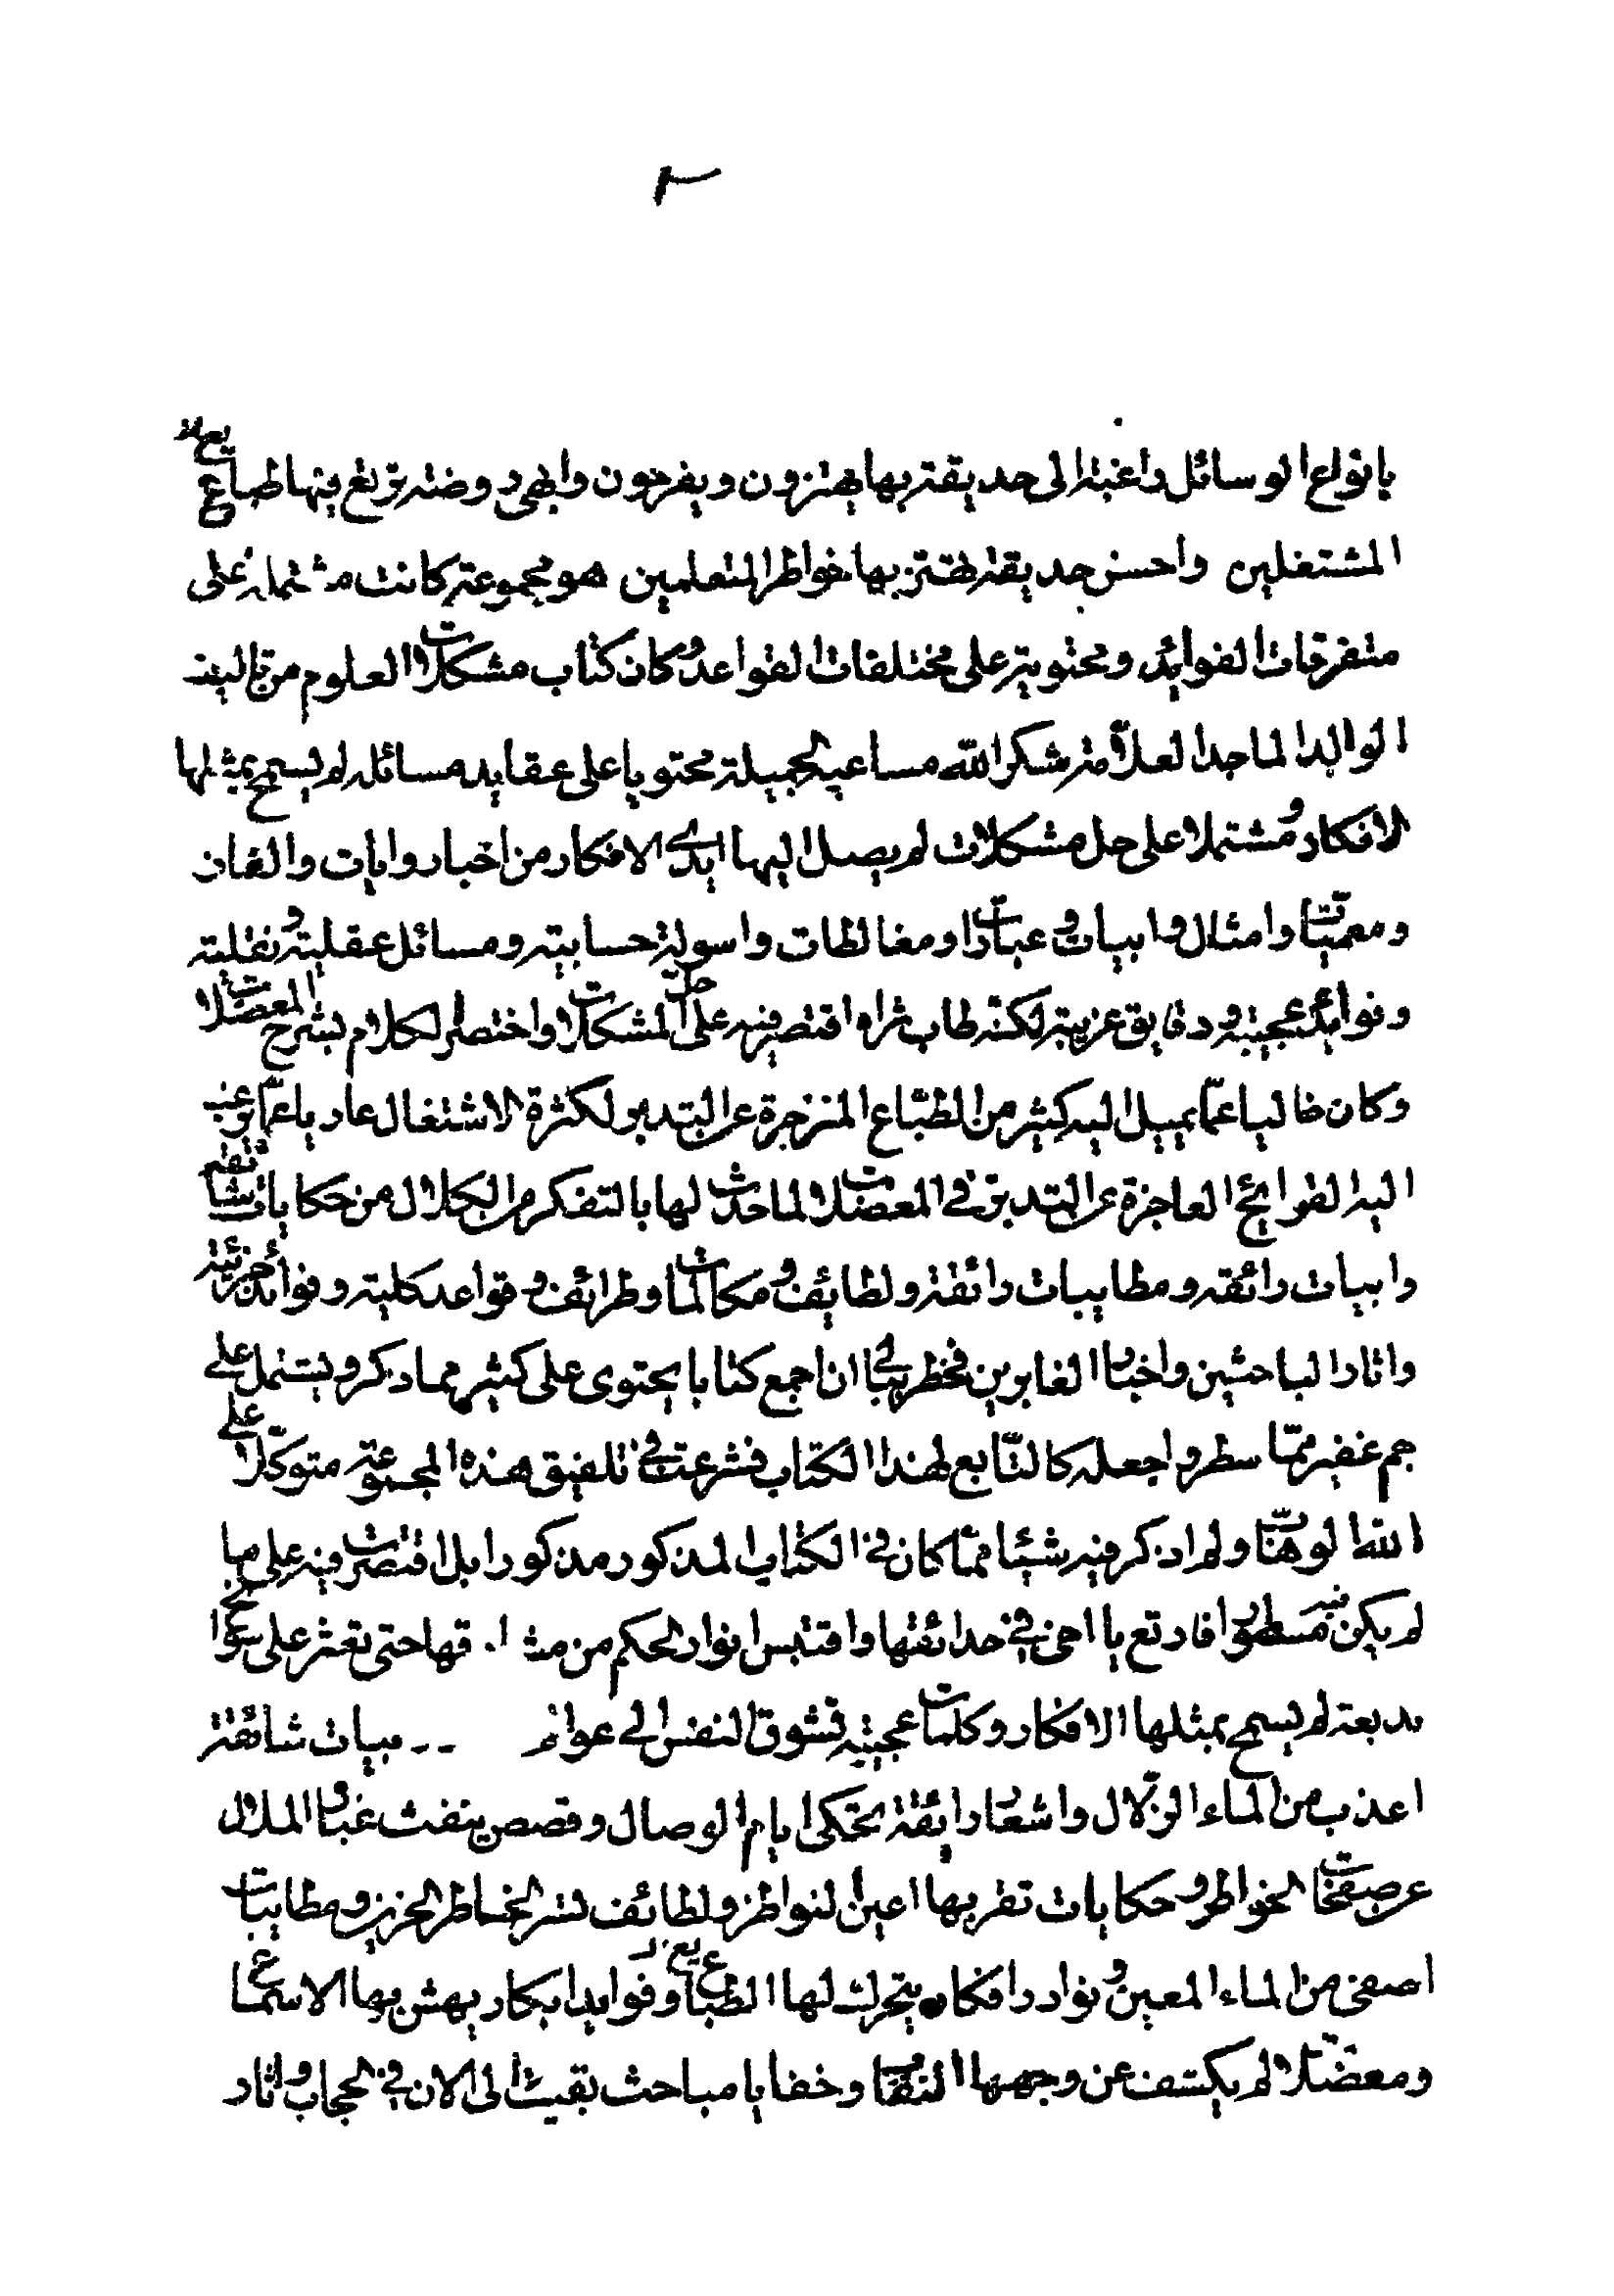 ٢
بانواع الوسائل راغبة الى حديقة بها يهتزون ويفرحون وابهى روضة ترتع فيها طبايع
المشتغلين واحسن حديقة تهتز بها خواطر المتعلمين هو مجموعة كانت مشتملة على
متفرقات الفوائد ومحتوية على مختلفات القواعد وكان كتاب مشكلات العلوم من تاليف
الوالد الماجد العلامة شكر الله مساعيه الجميلة محتويا على عقايد مسائل لم يسمح بمثلها
الافكار ومشتملا على حل مشكلات لم يصل اليها ايدى الافكار من اخبار وايات والغاز
ومعميات وامثال وابيات وعبارات ومغالطات واسولة حسابية ومسائل عقلية ونقلية
وفوايد عجيبة ودقايق غريبة لكنه طاب ثراه اقتصر فيه على حل المشكلات واختصر الكلام بشرح المعضلات
وكان خاليا عما يميل اليه كثير من الطباع المنزجرة عن التدبر لكثرة الاشتغال عاريا عما يرغب
اليه القرايح العاجزة عن التدبر في المعضلات لما حدث لها بالتفكر من الكلال من حكايات شائقة
وابيات رائقة ومطايبات رائقة ولطايف ومكالمات وظرائف وقواعد كلية وفوائد جزئية
واثار الباحثين واخبار الغابرين فخطر ببالى ان اجمع كتابا يحتوى على كثير مما ذكر ويشتمل على
جم غفير مما سطر واجعله كالتابع لهذا الكتاب فشرعت في تلفيق هذه المجموعة متوكلا على
الله الوهاب ولم اذكر فيه شيئا مما كان في الكتاب المذكور مذكورا بل اقتصرت فيه على ما
لم يكن فيه مسطورا فارتع يا اخى في حدائقها واقتبس انوار الحكم من قها حتى تعثر على سوانح
بديعة لم يسمح بمثلها الافكار وكلمات عجيبة تشوق النفس الى بيات شائقة
اعذب من الماء الزلال واشعار رايقة تحكى ايام الوصال وقصص ينفث غبار الملال
عن صفحات الخواطر وحكايات تقر بها اعين النواظر ولطائف تسر الخاطر الحزين ومطايبات
اصفى من الماء المعين ونوادر افكار يتحرك لها الطبايع وفوايد ابكار يهش بها الاسماع
ومعضلات لم يكشف عن وجهها النقاب وخفايا مباحث بقيت الى الان في الحجاب واثار